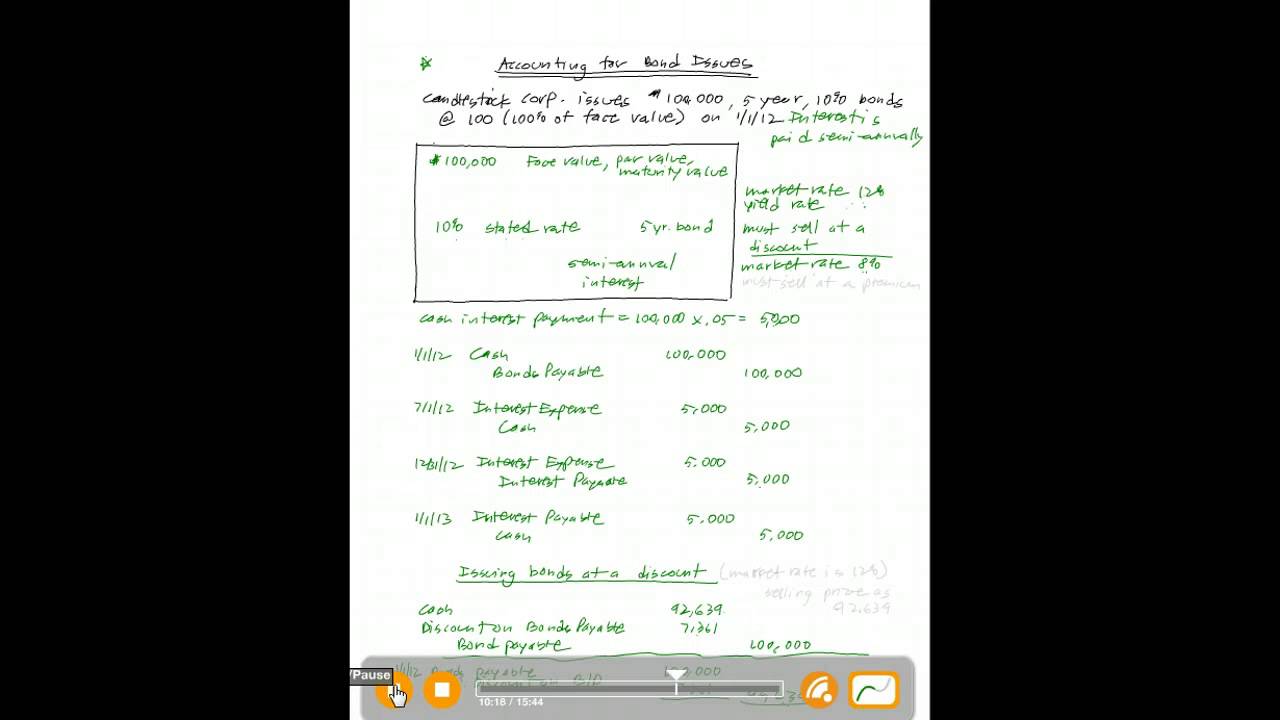 Accounting for Bond Issues
Candlestick Corp. issues $100,000, 5 year, 10% bonds
@ 100 (100% of face value) on 1/1/12 Interest is
paid semi-annually
$100,000 Face value, par value,
maturity value
market rate 12%
yield rate
10% stated rate 5 yr. bond
must sell at a
discount
semi-annual
interest
market rate 8%
must sell at a premium
cash interest payment = 100,000 x .05 = 5,000
1/1/12 Cash 100,000
Bonds Payable 100,000
7/1/12 Interest Expense 5,000
Cash 5,000
12/31/12 Interest Expense 5,000
Interest Payable 5,000
1/1/13 Interest Payable 5,000
Cash 5,000
Issuing bonds at a discount (market rate is 12%)
selling price is
92,639
Cash 92,639
Discount on Bonds Payable 7,361
Bond payable 100,000
/Pause
1/1/12 payable
10:18 / 15:44